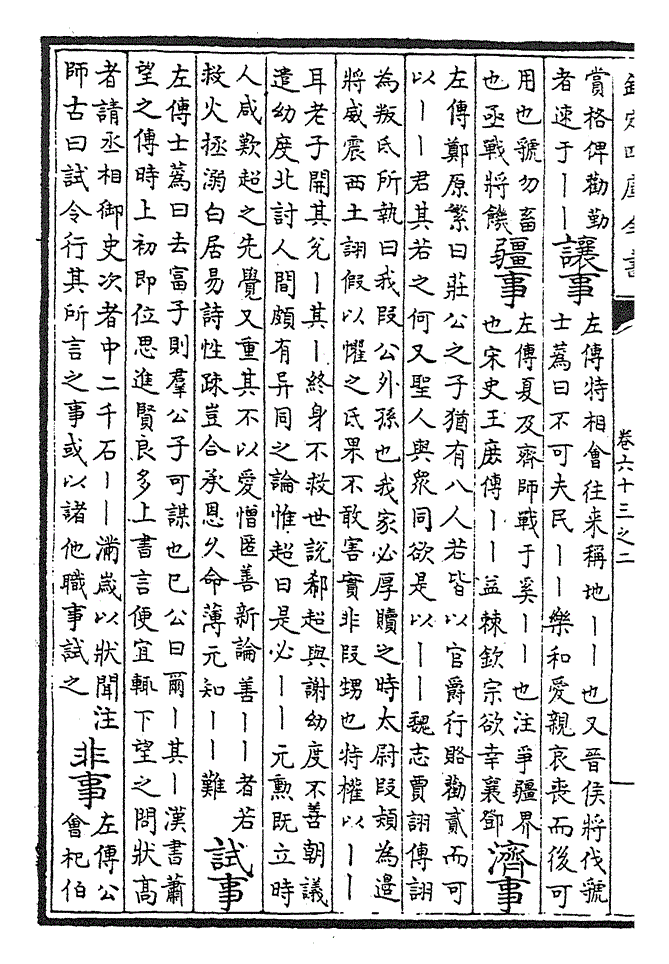 欽定四庫全書
卷六十三之二
賞格俾勸勤
者速于丨丨
讓事
左傳特相會往来稱地丨丨也又晉侯將伐虢
士蒍曰不可夫民丨丨樂和愛親哀喪而後可
用也虢勿畜
也亟戰將饑
疆事
左傳夏及齊師戰于奚丨丨也注爭疆界
也宋史王庶傳丨丨益棘欽宗欲幸襄鄧
濟事
左傳鄭原繁曰莊公之子猶有八人若皆以官爵行賂勸貳而可
以丨丨君其若之何又聖人與衆同欲是以丨丨魏志賈詡傳詡
為叛氐所執曰我段公外孫也我家必厚贖之時太尉段熲為邊
將威震西土詡假以懼之氐果不敢害實非段甥也特權以丨丨
耳老子開其兊丨其丨終身不救世說郗超與謝幼度不善朝議
遣幼度北討人間頗有异同之論惟超曰是必丨丨元勲既立時
人咸歎超之先覺又重其不以愛憎匿善新論善丨丨者若
救火拯溺白居易詩性疎豈合承恩久命薄元知丨丨難
試事
左傳士蒍曰去富子則羣公子可謀也已公曰爾丨其丨漢書蕭
望之傳時上初即位思進賢良多上書言便宜輒下望之問狀高
者請丞相御史次者中二千石丨丨滿歲以狀聞注
師古曰試令行其所言之事或以諸他職事試之
非事
左傳公
會杞伯